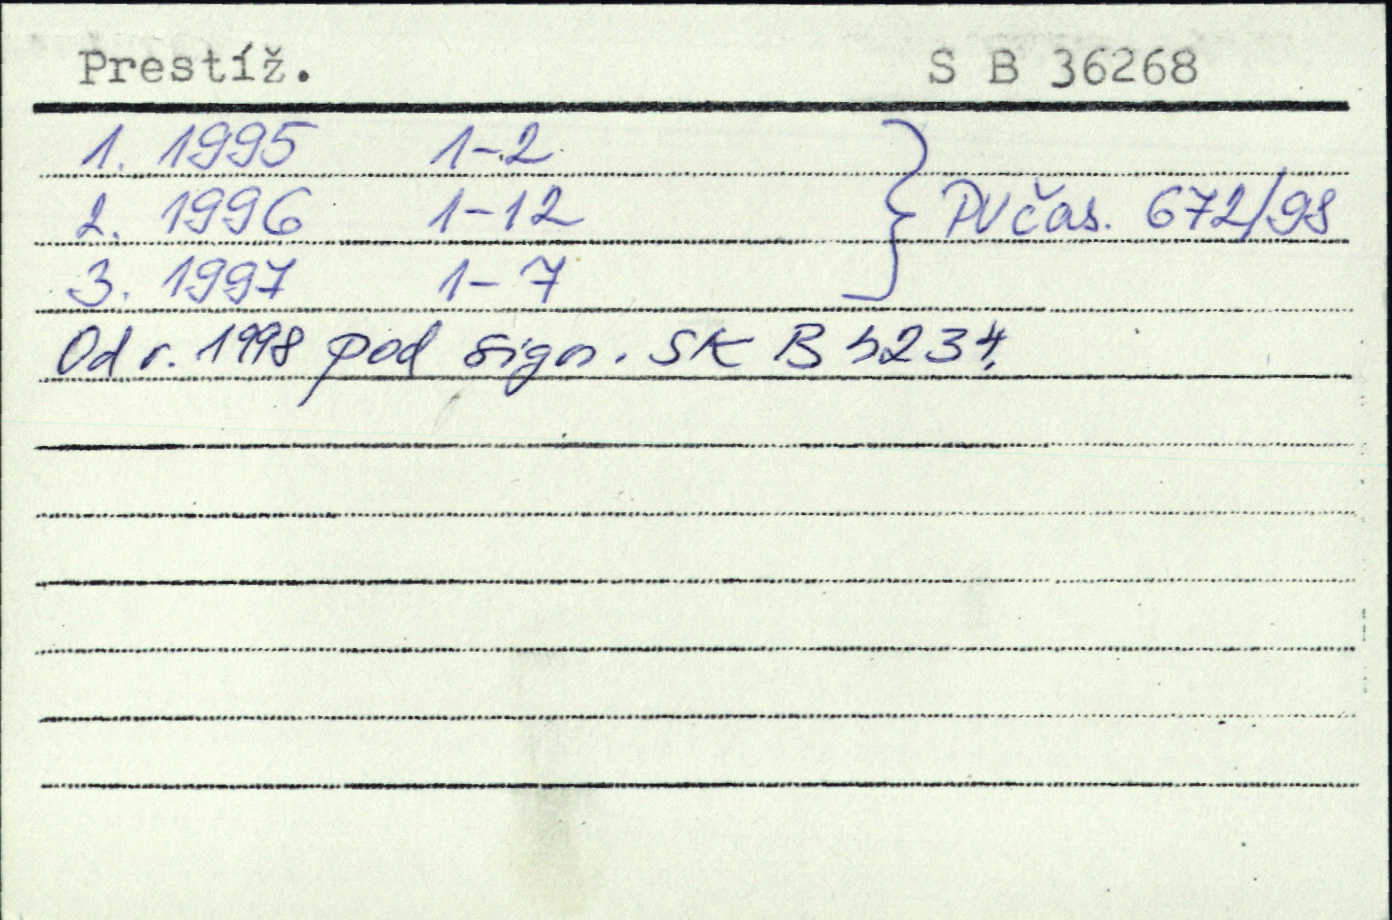 Prestíž. S B 36268
1. 1995 1-2
2. 1996 1-12 } PV čas. 672/98
3. 1997 1-7
Od r. 1998 pod sign. SK B 5234.